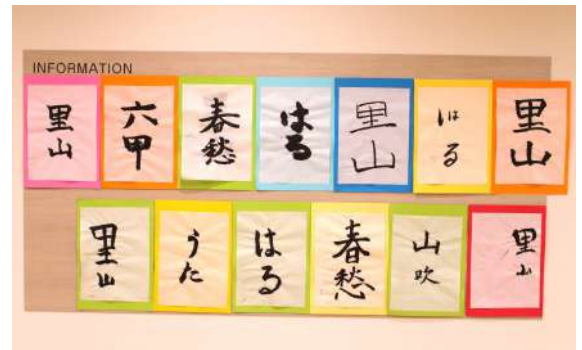 INFORMATION
里山
六甲
春愁
はる
里山
はる
里山
里山
うた
はる
春愁
山吹
里山